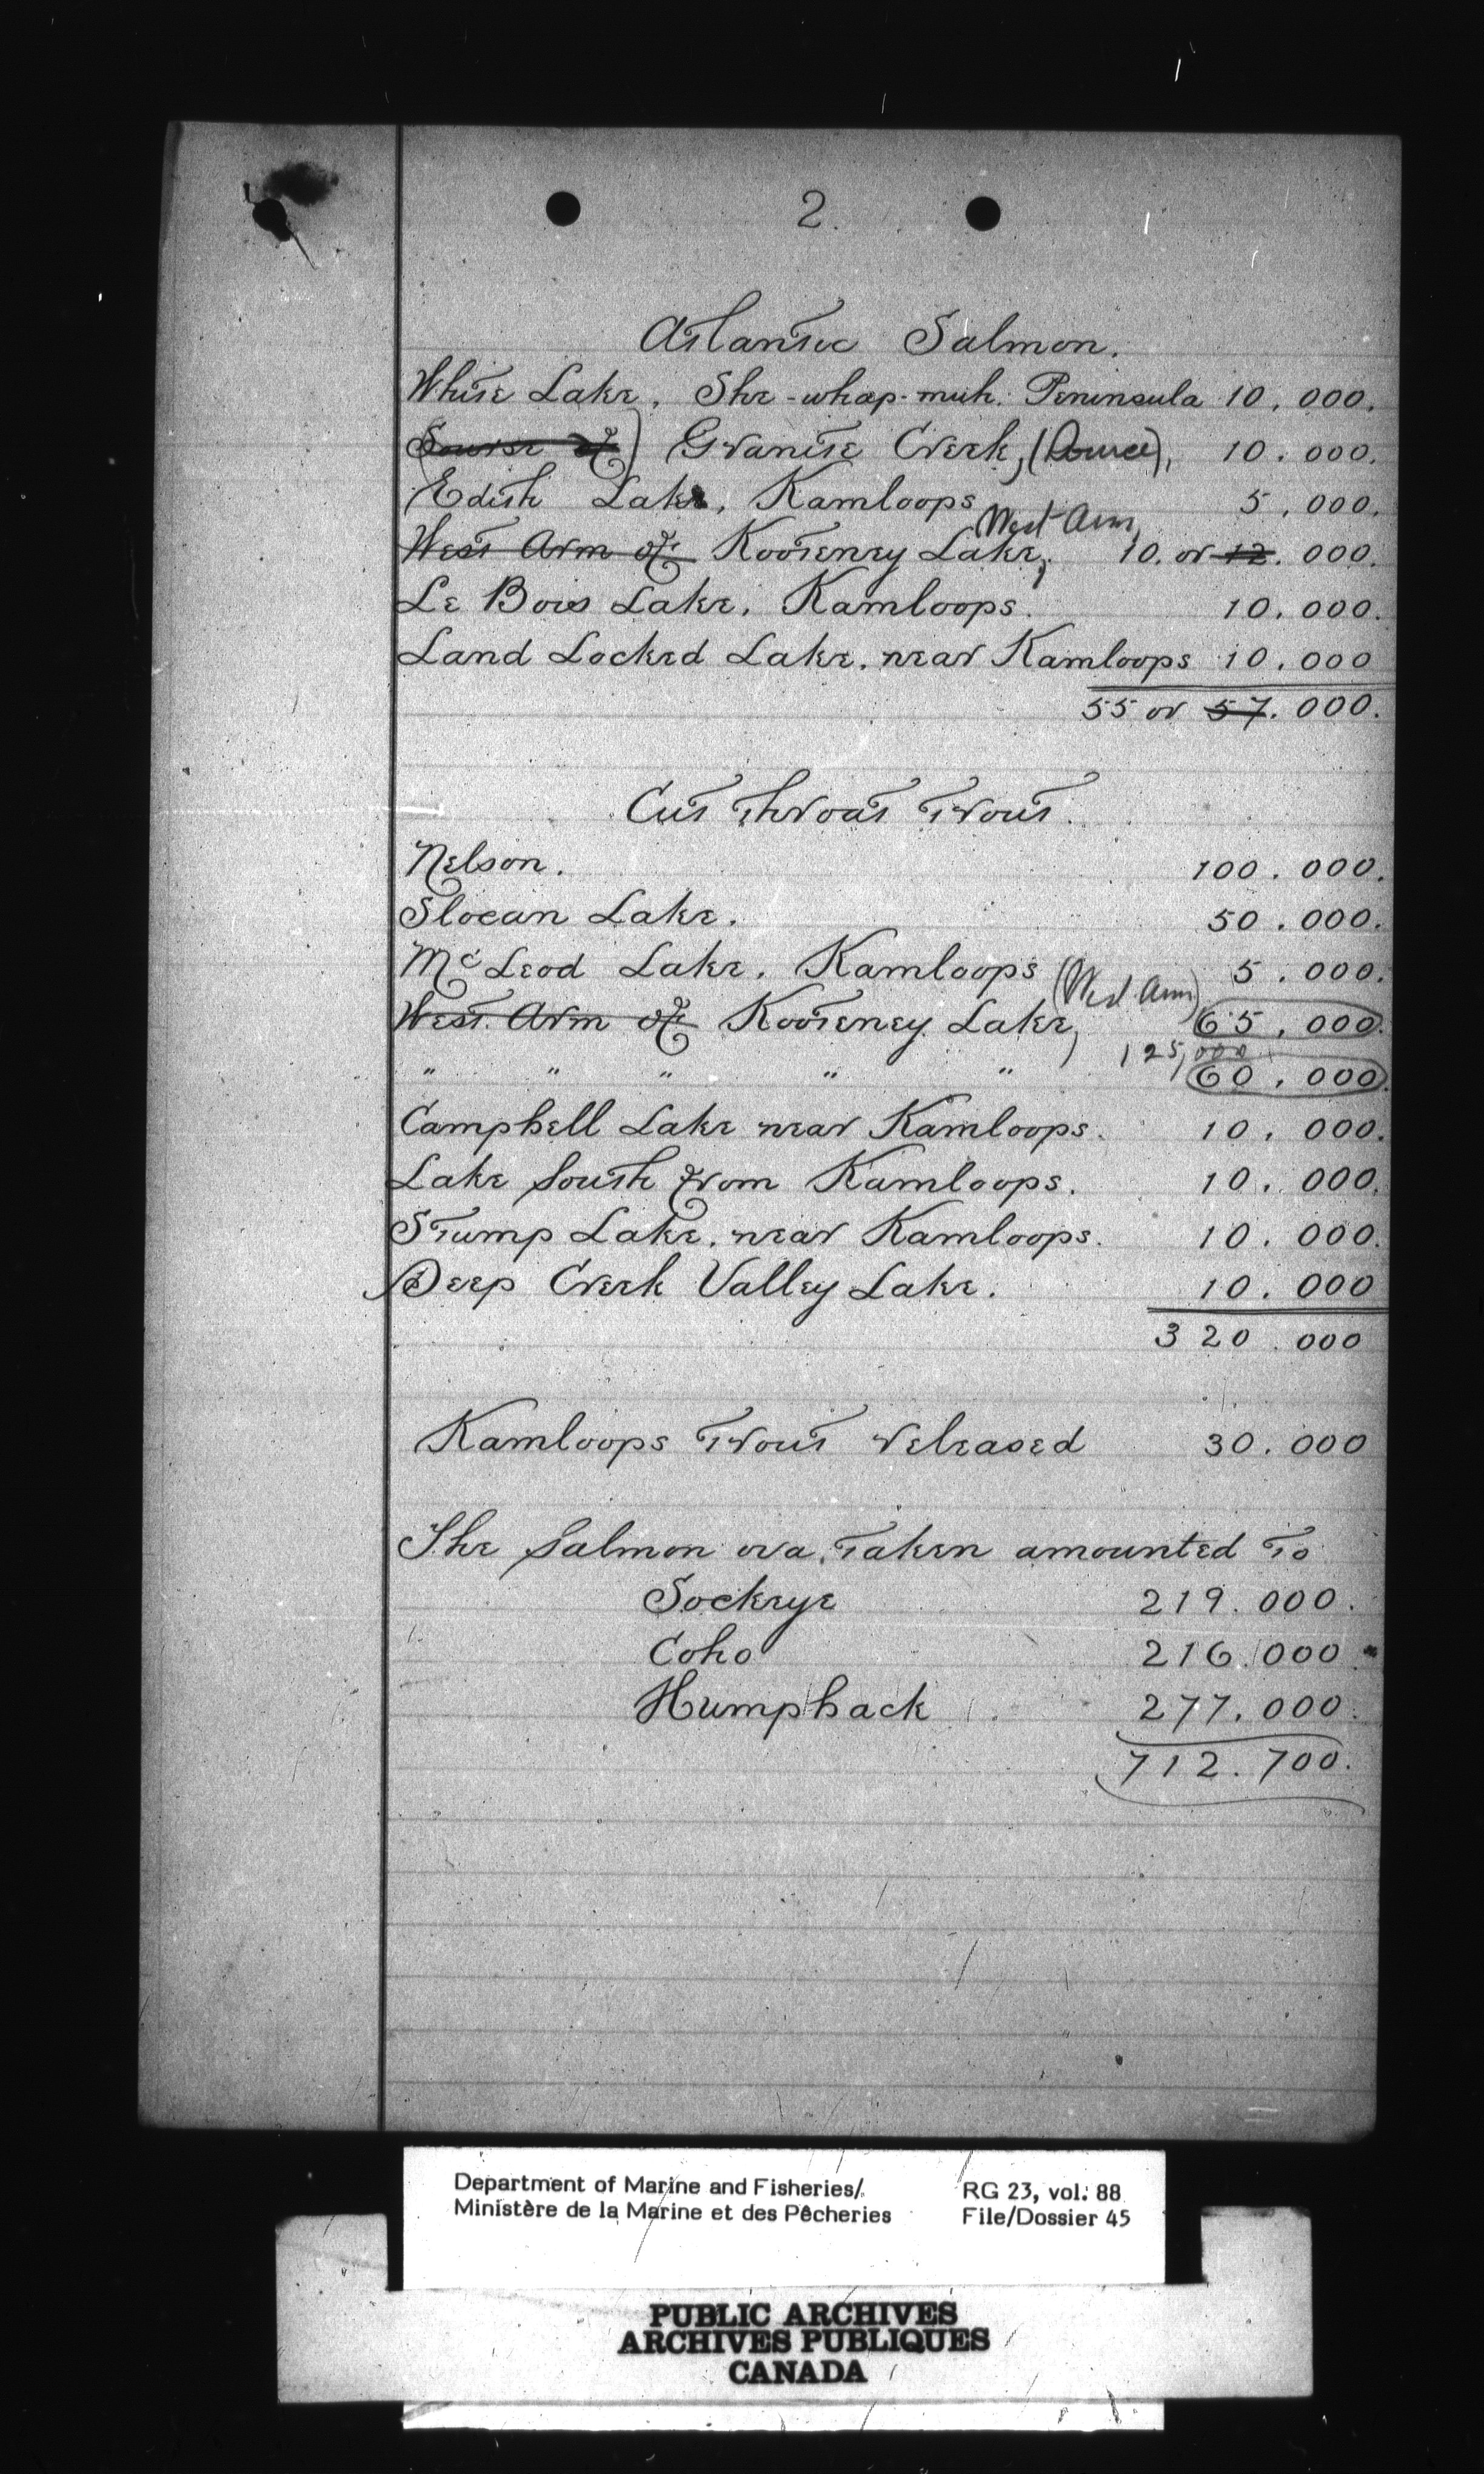 2.
Atlantic Salmon.
White Lake, She-whap-muh. Peninsula 10.000.
(Sourse of) Granite Creek, (Source), 10.000.
Edith Lake, Kamloops 5,000.
West Arm,
West Arm of Kooteney Lake, 10. or 12.000.
Le Bois Lake, Kamloops. 10.000.
Land Locked Lake, near Kamloops 10.000
55 or 57.000.
Cut Throat Trout.
Nelson. 100.000.
Slocan Lake. 50.000.
McLeod Lake, Kamloops 5.000.
(West Arm)
West Arm of Kooteney Lake, 65,000.
125,000
" " " " " 60,000.
Campbell Lake near Kamloops. 10,000.
Lake South from Kamloops. 10.000.
Stump Lake, near Kamloops. 10.000.
Deep Creek Valley Lake. 10.000
320.000
Kamloops Trout released 30.000
The Salmon ova, taken amounted to
Sockeye 219.000.
Coho 216.000
Humpback 277.000.
712.700.
Department of Marine and Fisheries/
Ministère de la Marine et des Pêcheries
RG 23, vol. 88
File/Dossier 45
PUBLIC ARCHIVES
ARCHIVES PUBLIQUES
CANADA